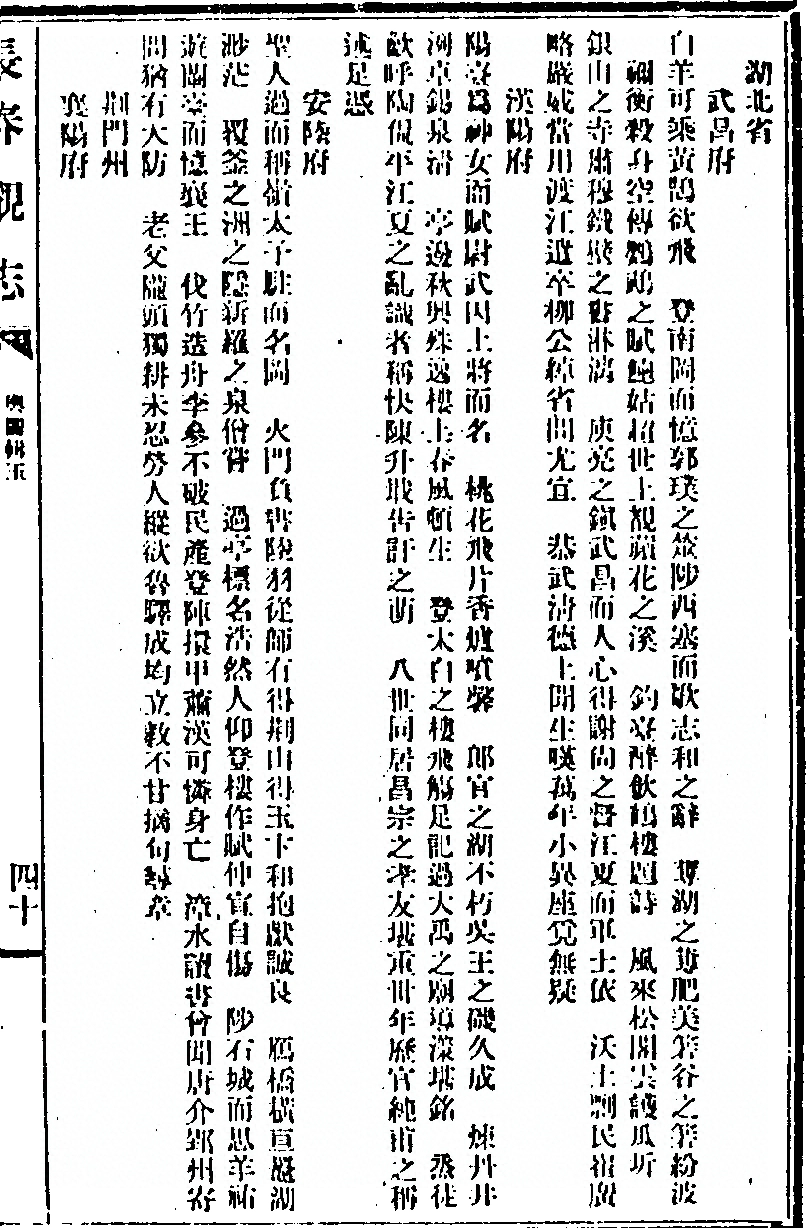 湖北省
武昌府
白羊可乘黃鵠欲飛　登南岡而憶郭璞之筮陟西塞而歌志和之辭　蓴湖之蓴肥美箬谷之箬紛披
禰衡殺身空傳鸚鵡之賦鮑姑超世上觀蘋花之溪　釣臺醉飲鶴樓題詩　風來松閣雲護瓜圻
銀山之寺肅穆鐵嶽之碁淋漓　庾亮之鎮武昌而人心得謝尚之督江夏而軍士依　沃土剽民崔廣
略嚴威當用渡江遒卒柳公綽省問尤宜　恭武清德上聞生嘆萬年小異座覺無疑
漢陽府
陽臺爲神女而賦尉武因上將而名　桃花飛片香爐噴馨　郎官之湖不朽吳王之磯久成　煉丹井
洌卓錫泉清　亭邊秋興殊逸樓上春風頓生　登太白之樓飛觴足記過大禹之廟導漾堪銘　烝徒
歡呼陶侃平江夏之亂識者稱快陳升戢告訐之萌　八世同居昌宗之孝友堪重卅年歷官純甫之稱
述足憑
安陸府
聖人過而稱嶺太子駐而名岡　火門負書陸羽從師有得荆山得玉卞和抱獻誠良　鴈橋橫亘鼹湖
渺茫　覆釜之洲之隱新羅之泉僧嘗　過亭標名浩然人仰登樓作賦仲宣自傷　陟石城而思羊祜
遊蘭臺而憶襄王　伐竹造舟李參不破民產登陣擐甲蕭漢可憐身亡　滶水讀書曾聞唐介郢州寄
問猶有大防　老父隴頭獨耕未忍勞人縱欲魯驛成均立敎不甘摘句尋章
荆門州
襄陽府
長春觀志
四
輿圖輯五
四十